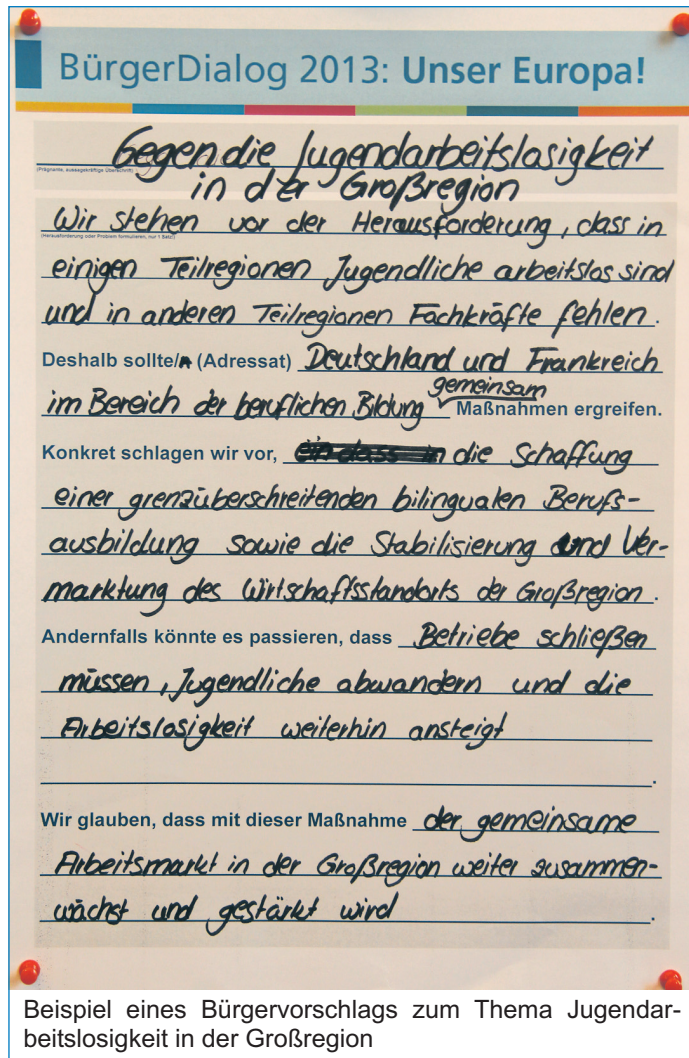 BürgerDialog 2013: Unser Europa!
Gegen die Jugendarbeitslosigkeit
(Prägnante, aussagekräftige Überschrift)
in der Großregion
Wir stehen vor der Herausforderung, dass in
(Herausforderung oder Problem formulieren, nur 1 Satz!)
einigen Teilregionen Jugendliche arbeitslos sind
und in anderen Teilregionen Fachkräfte fehlen.
Deshalb sollte/n (Adressat) Deutschland und Frankreich
gemeinsam
im Bereich der beruflichen Bildung Maßnahmen ergreifen.
Konkret schlagen wir vor, ein dass in die Schaffung
einer grenzüberschreitenden bilingualen Berufs-
ausbildung sowie die Stabilisierung und Ver-
marktung des Wirtschaftsstandorts der Großregion.
Andernfalls könnte es passieren, dass Betriebe schließen
müssen, Jugendliche abwandern und die
Arbeitslosigkeit weiterhin ansteigt
.
Wir glauben, dass mit dieser Maßnahme der gemeinsame
Arbeitsmarkt in der Großregion weiter zusammen-
wächst und gestärkt wird.
Beispiel eines Bürgervorschlags zum Thema Jugendar-
beitslosigkeit in der Großregion